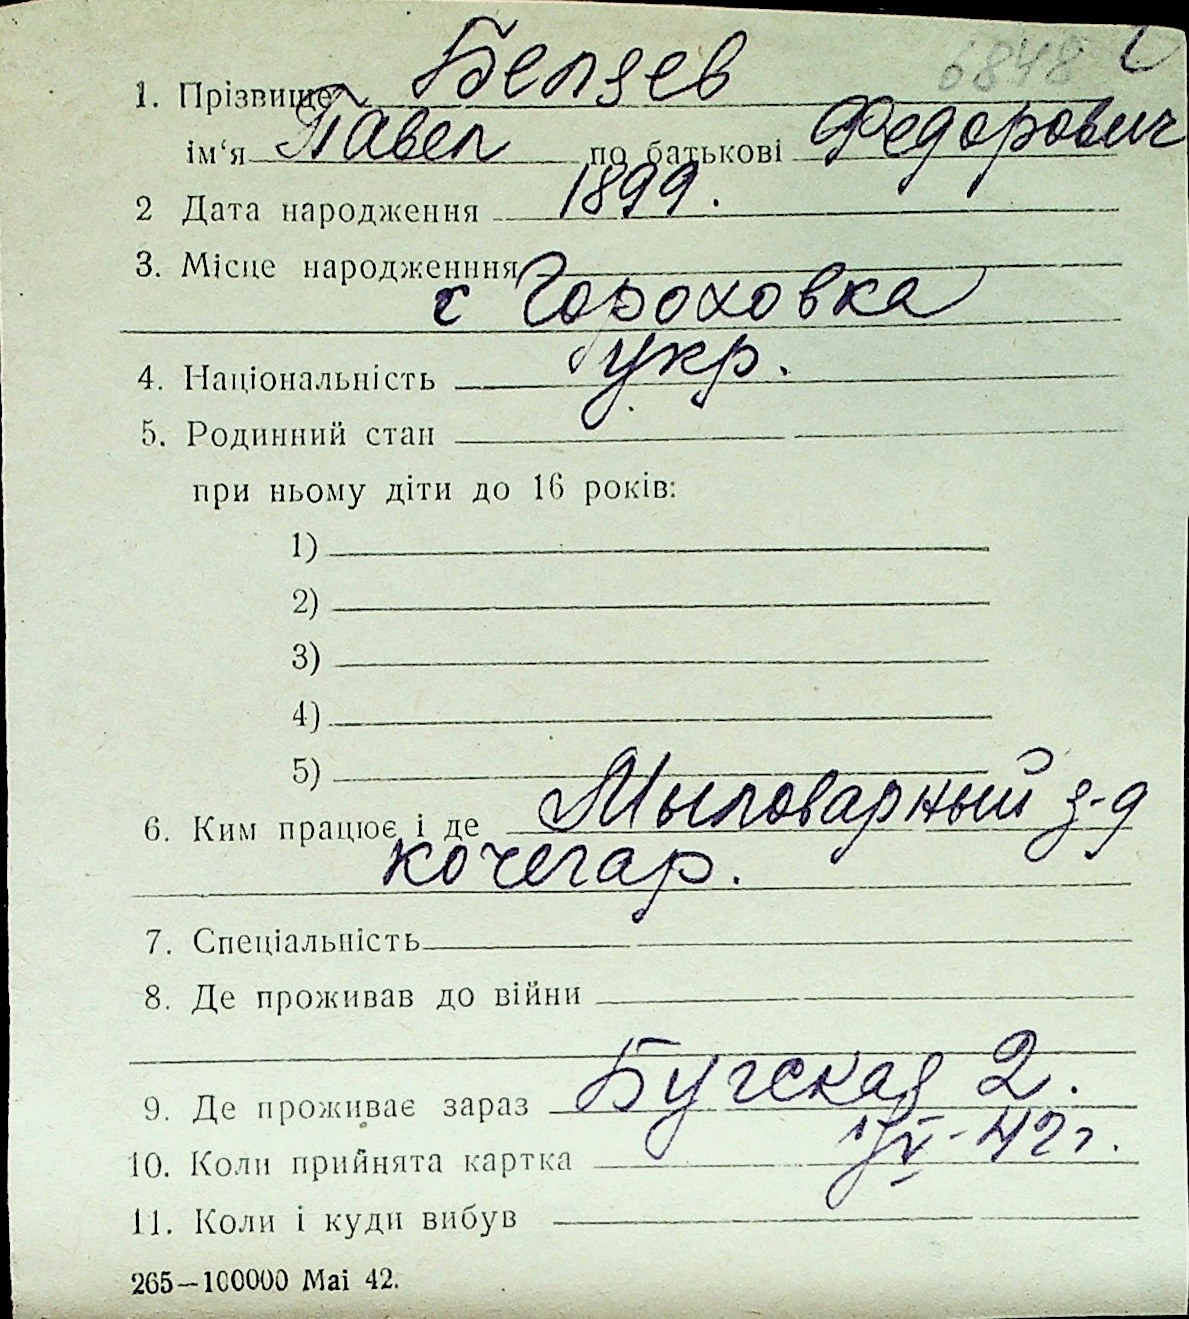 6848
1. Прізвище Беляев
ім‘я Павел по батькові Федорович
2 Дата народження 1899.
3. Місце народженння
с Гороховка
4. Національність укр.
5. Родинний стан
при ньому діти до 16 років:
1)
2)
3)
4)
5)
6. Ким працює і де Мыловарный з-д
кочегар.
7. Спеціальність
8. Де проживав до війни
9. Де проживає зараз Бугская 2.
10. Коли прийнята картка 42г.
11. Коли і куди вибув
265—100000 Mai 42.